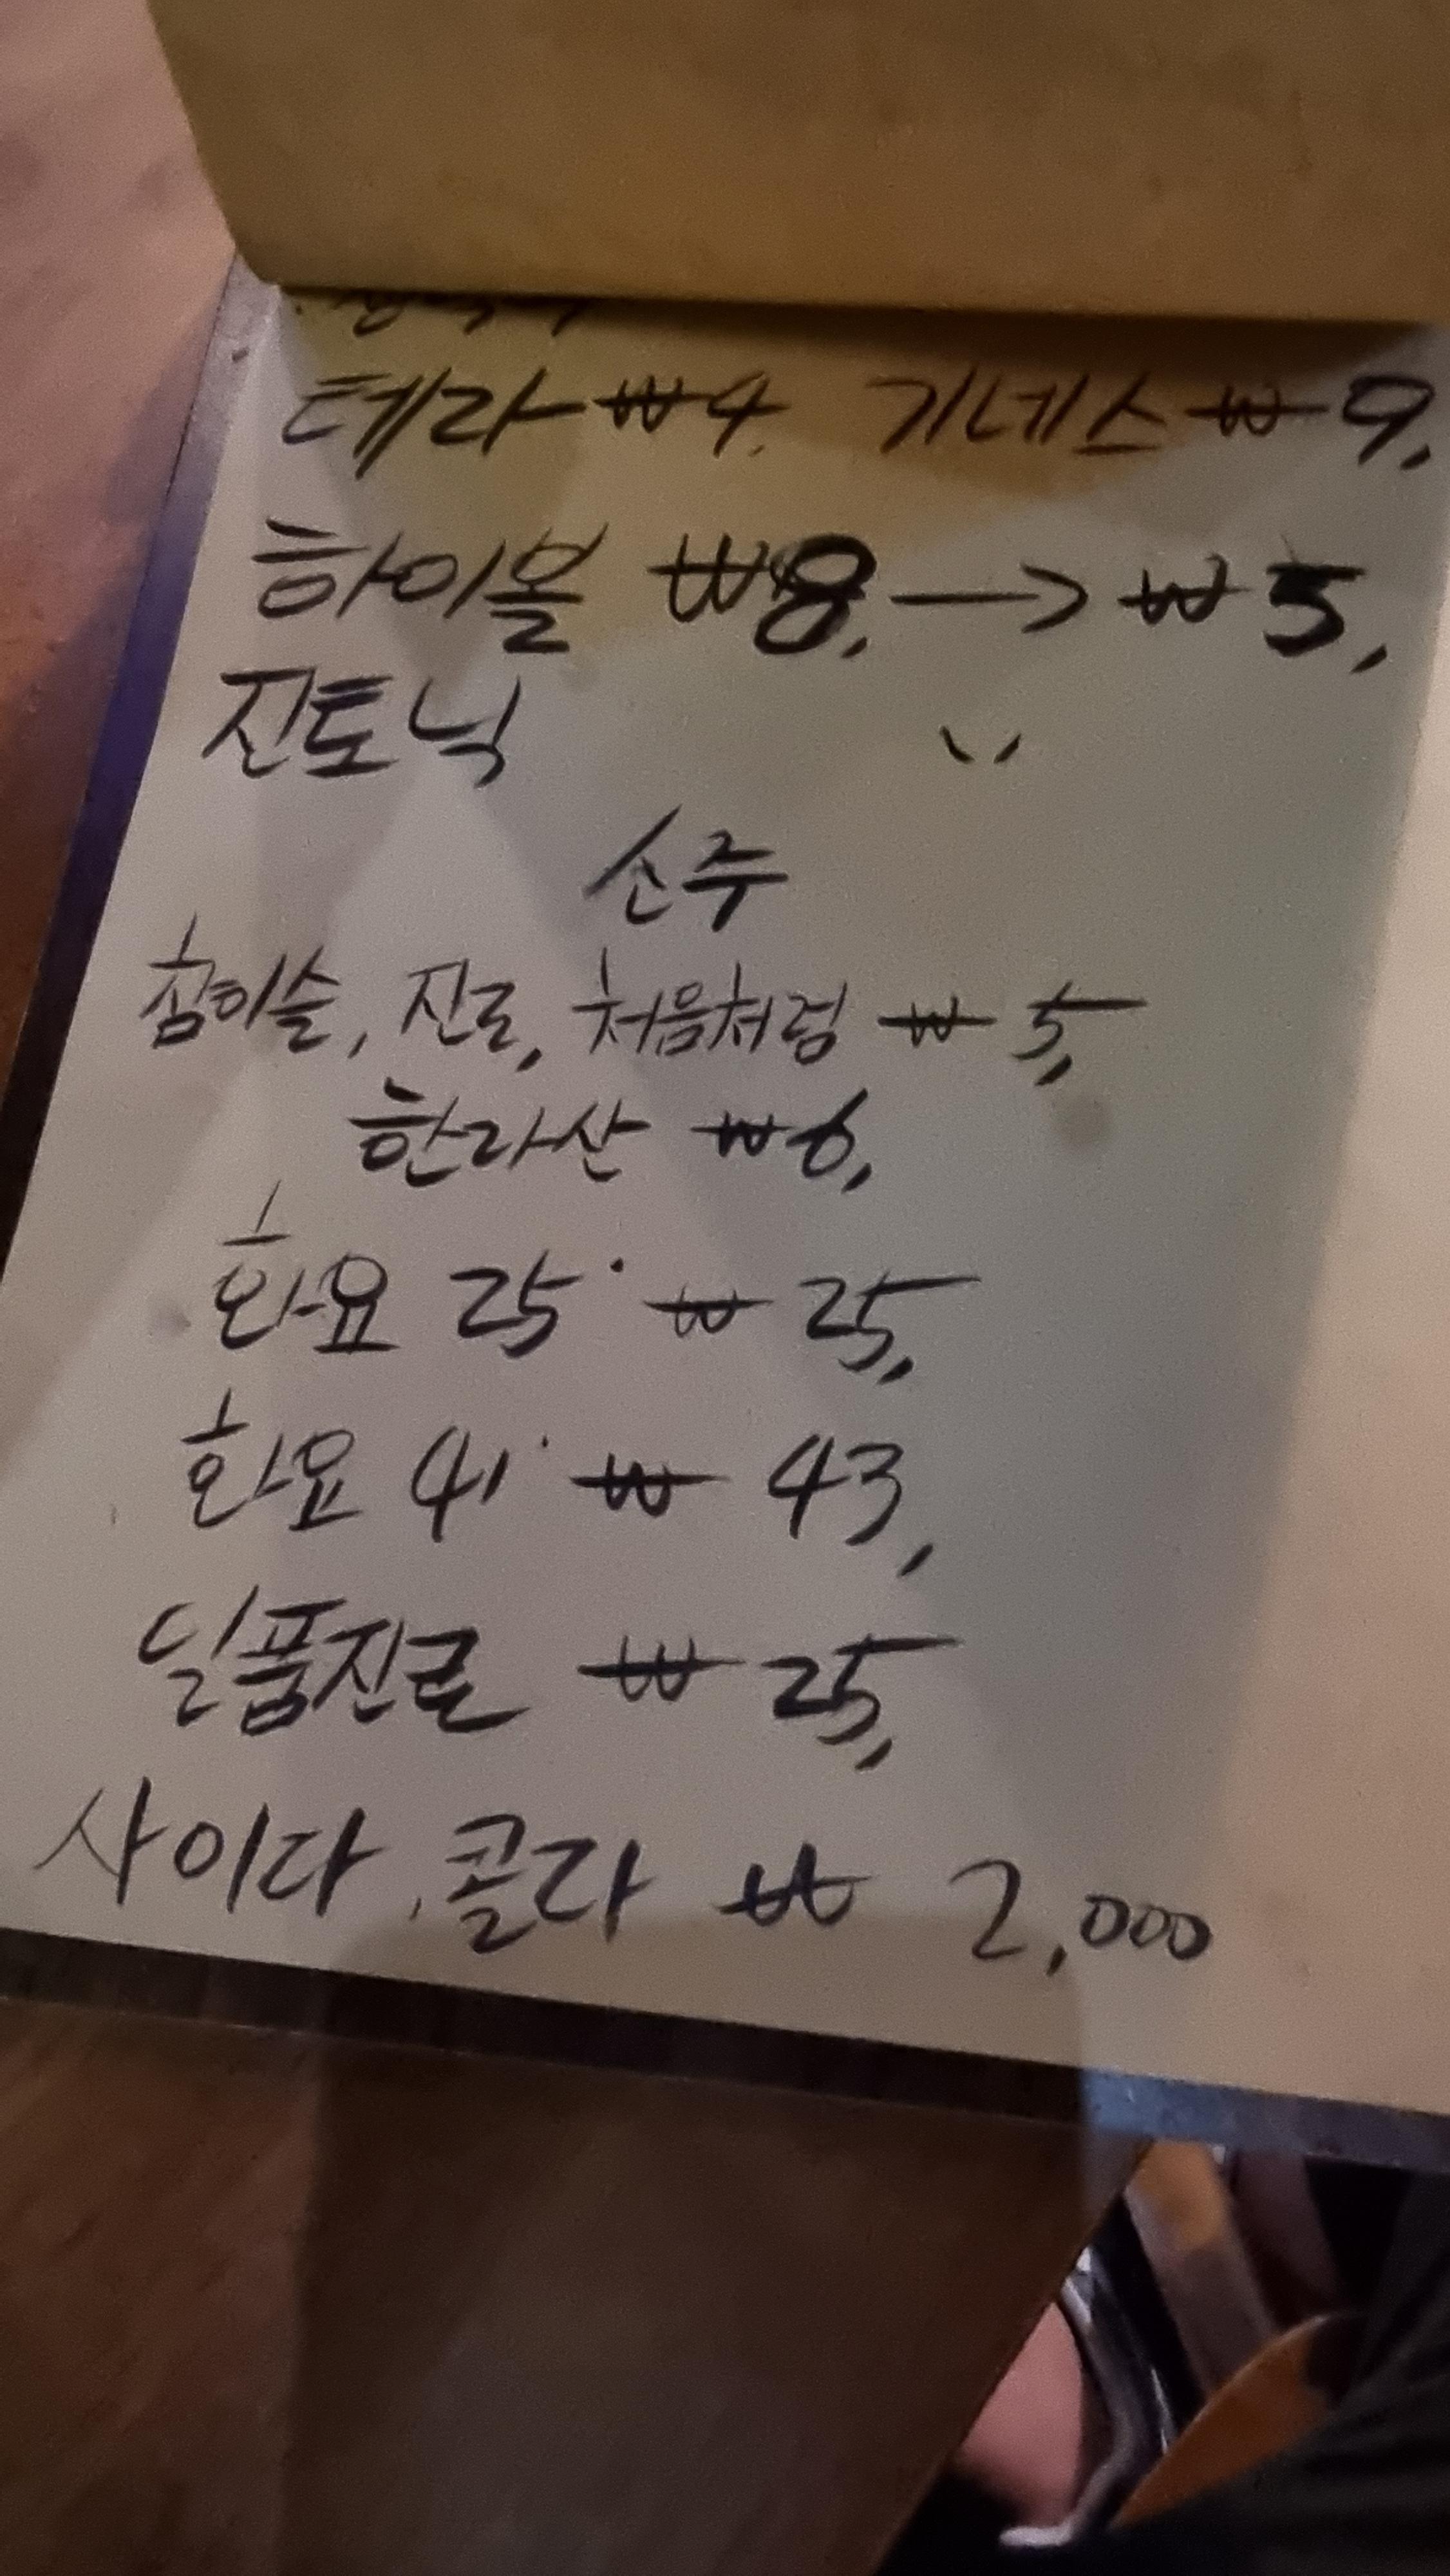 테라 ₩4, 기네스 ₩9,
하이볼 ₩8, → ₩5,
진토닉 〃
소주
참이슬, 진로, 처음처럼 ₩5,
한라산 ₩6,
화요 25˙ ₩ 25,
화요 41˙ ₩ 43,
일품진로 ₩ 25,
사이다, 콜라 ₩ 2,000